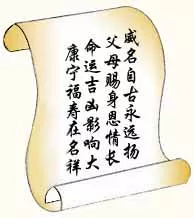 威名自古永远扬
父母赐身恩情长
命运吉凶影响大
康宁福寿在名祥